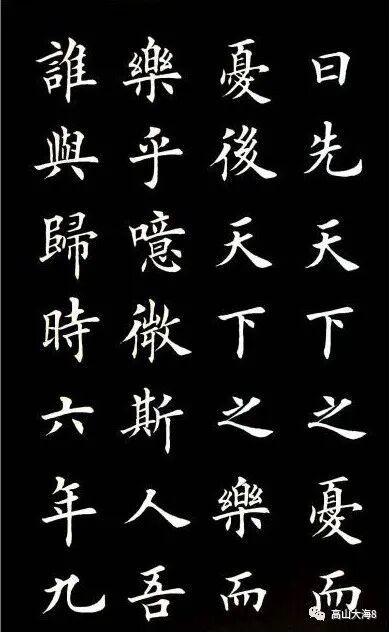 曰先天下之憂而
憂後天下之樂而
樂乎噫微斯人吾
誰與歸時六年九
高山大海8